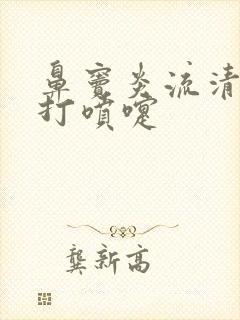 鼻窦炎流清
打喷嚏
龚新高